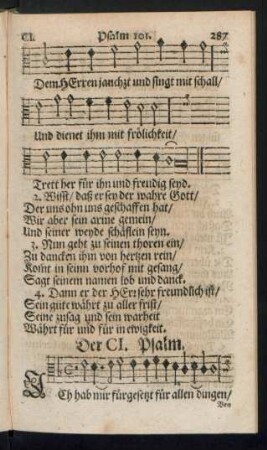 CI. Psalm 101. 287
Dem HErren jauchzt und singt mit schall/
Und dienet ihm mit frölichkeit/
Trett her für ihn und freudig seyd.
2. Wisst/ daß er sey der wahre Gott/
Der uns ohn uns geschaffen hat/
Wir aber sein arme gemein/
Und seiner weyde schäflein seyn.
3. Nun geht zu seinen thoren ein/
Zu dancken ihm von hertzen rein/
Komt in seinn vorhof mit gesang/
Sagt seinem namen lob und danck.
4. Dann er der HErr sehr freundlich ist/
Sein güte währt zu aller frist/
Seine zusag und sein warheit
Währt für und für in ewigkeit.
Der CI. Psalm.
ICh hab mir fürgesetzt für allen dingen/
Von